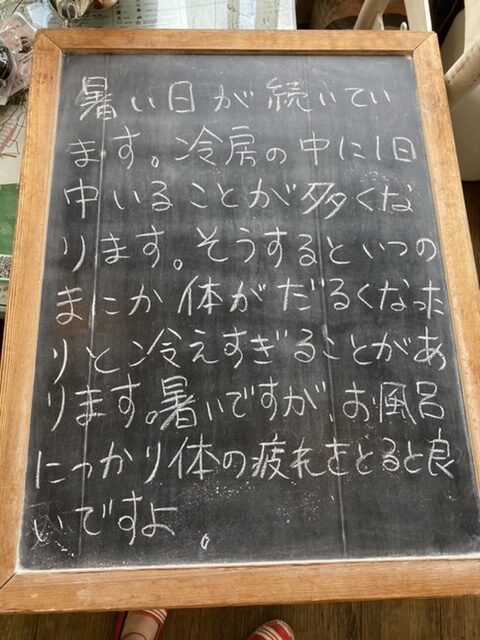 暑い日が続いてい
ます。冷房の中に1日
中いることが多くな
ります。そうするといつの
まにか体がだるくなった
りと冷えすぎることがあ
ります。暑いですが、お風呂
にっかり体の疲れをとると良
いですよ。